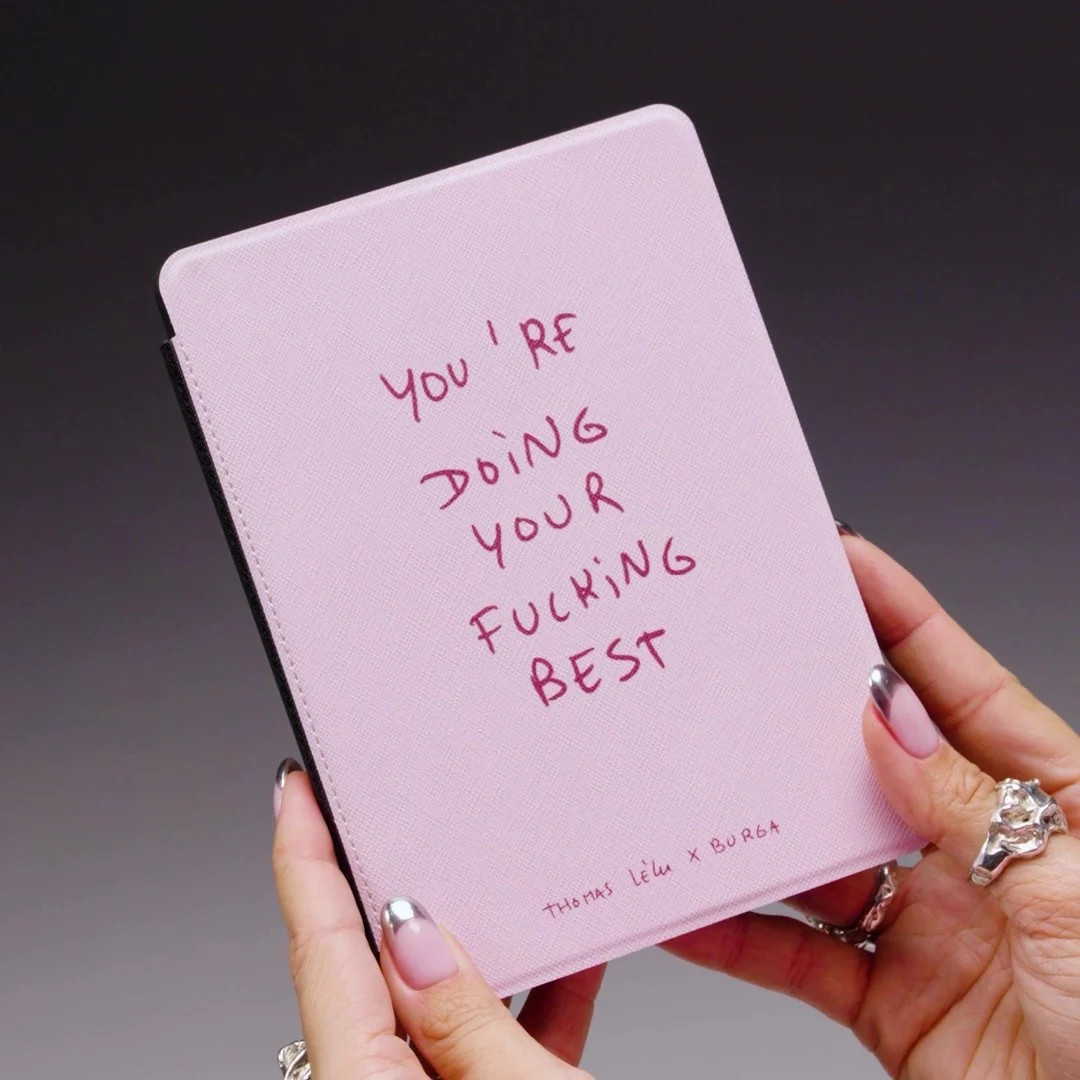 YOU'RE
DOING
YOUR
FUCKING
BEST
THOMAS LÉLU X BURGA